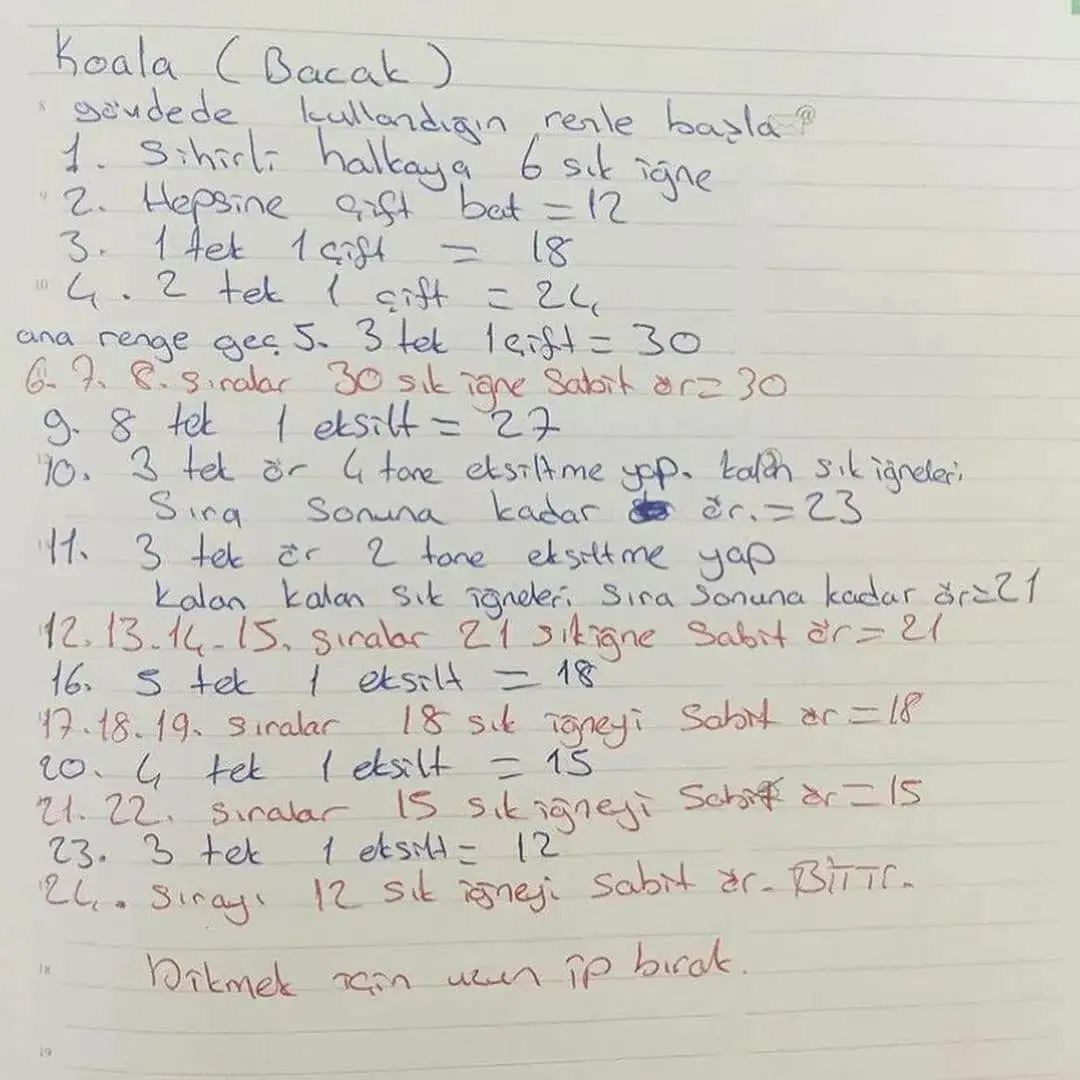 Koala (Bacak)
8
gövdede kullandığın renle başla
1. Sihirli halkaya 6 sık iğne
9
2. Hepsine çift bat = 12
3. 1 tek 1 çift = 18
10
4. 2 tek 1 çift = 24
ana renge geç 5. 3 tek 1 çift = 30
6. 7. 8. sıralar 30 sık iğne Sabit ör = 30
9. 8 tek 1 eksilt = 27
10. 3 tek ör 4 tane eksiltme yap. kalan sık iğneleri
Sıra sonuna kadar ör. = 23
11. 3 tek ör 2 tane eksiltme yap
kalan kalan sık iğneleri sıra sonuna kadar ör = 21
12. 13. 14. 15. sıralar 21 sık iğne Sabit ör = 21
16. 5 tek 1 eksilt = 18
17. 18. 19. sıralar 18 sık iğneyi Sabit ör = 18
20. 4 tek 1 eksilt = 15
21. 22. sıralar 15 sık iğneyi Sabit ör = 15
23. 3 tek 1 eksilt = 12
24. sırayı 12 sık iğneyi sabit ör. BİTTİ.
18
Dikmek için uzun ip bırak.
19